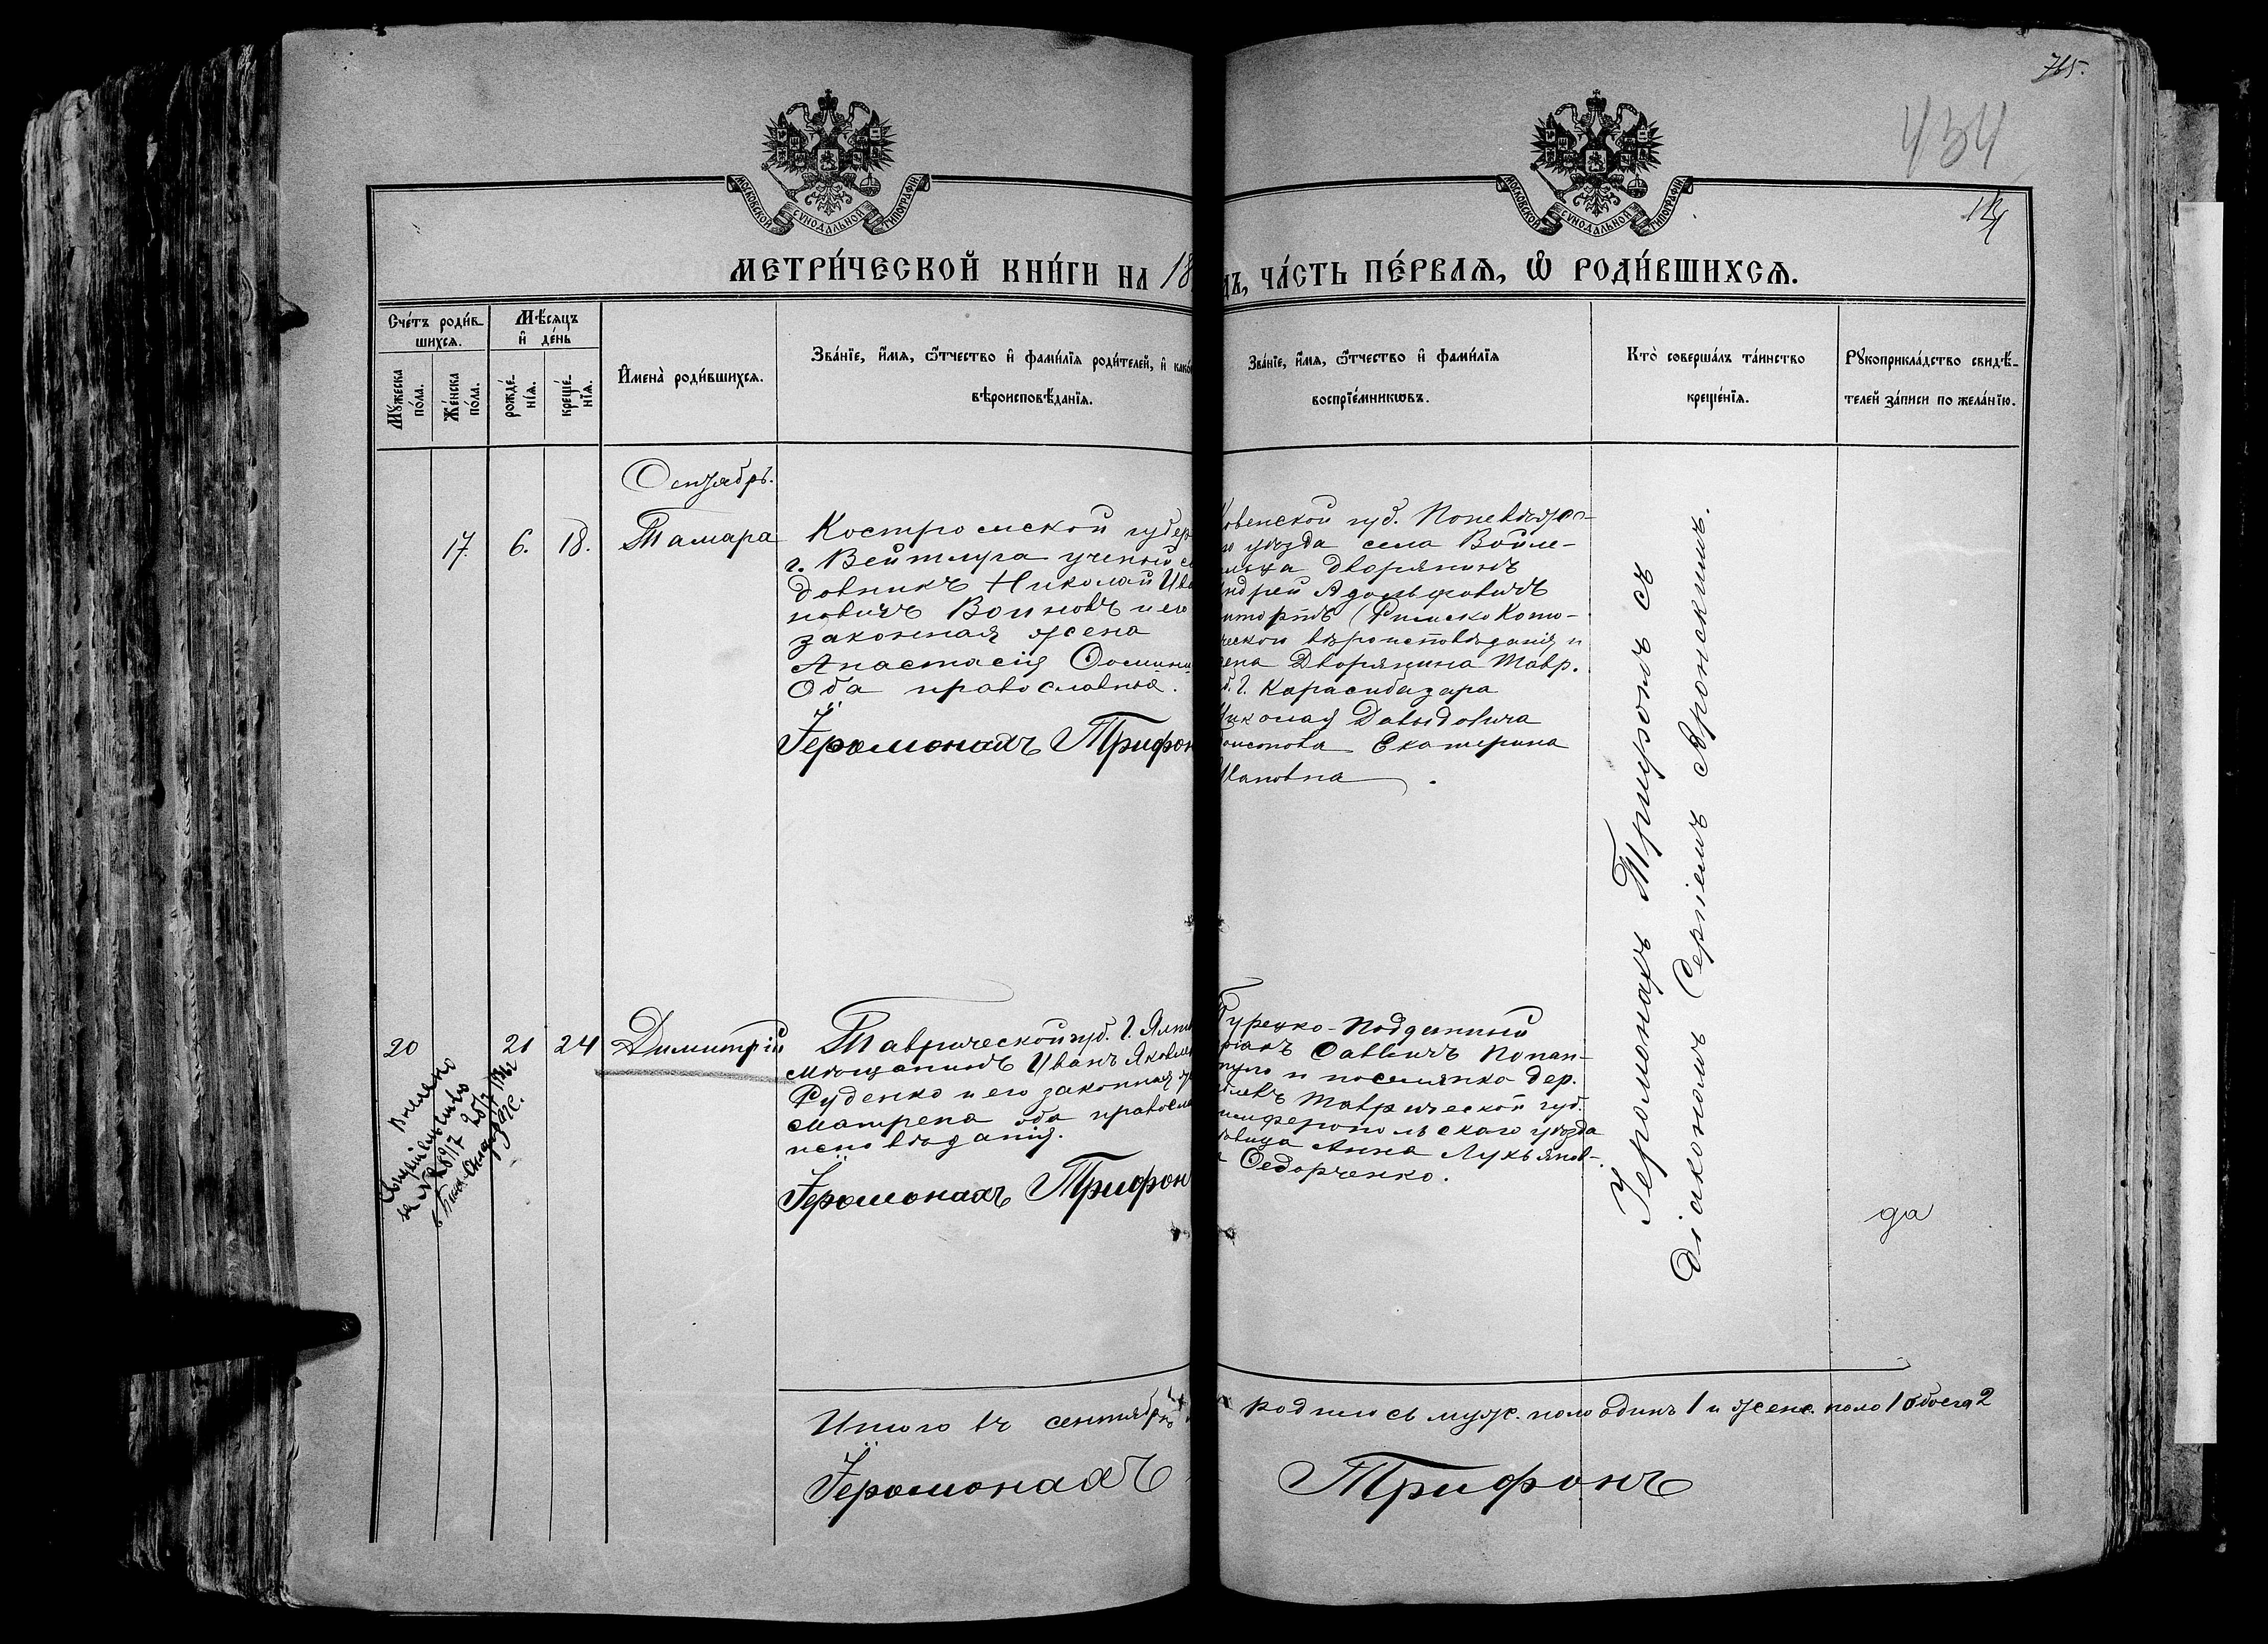 765.
434
МОСКОВСКОЙ СУНОДАЛЬНОЙ ТИПОГРАФІИ.
МОСКОВСКОЙ СУНОДАЛЬНОЙ ТИПОГРАФІИ.
МЕТРИ́ЧЕСКОЙ КНИ́ГИ НА 18
ЧА́СТЬ ПЕ́РВАѦ, Ѡ҆ РОДИ́ВШИХСѦ.
Сче́тъ роди́в-
шихсѧ.
Мꙋ́жеска
по́ла.
Же́нска
по́ла.
Мѣ́сѧцъ
и҆ де́нь
рожде́-
нїѧ.
креще́-
нїѧ.
И҆мена̀ роди́вшихсѧ.
Зва́нїе, и҆́мѧ, ѻ҆́тчество и҆ фами́лїѧ роди́телей, и҆
вѣроисповѣ́данїѧ.
Зва́нїе, и҆́мѧ, ѻ҆́тчество и҆ фами́лїѧ
воспрїе́мникѡвъ.
Кто̀ соверша́лъ та́инство
креще́нїѧ.
Рꙋкоприкла́дство свидѣ́-
телей за́писи по жела́нїю.
Сентябрь.
17. 6. 18. Тамара
Костромской губер
г. Ветлуга ученый са
довникъ Николай Ива
новичъ Воиновъ и его
законная жена
Анастасія
Оба православные.
Іеромонахъ Трифон
овенской губ. Поневѣжс-
го уѣзда села
дворянинъ
ндрей Адольфовичъ
(Римско Като-
ческой вѣроисповѣданія и
ена Дворянина Тавр.
б. г. Карасубазара
иколая Давыдовича
Екатерина
вановна.
Іеромонахъ Трифонъ съ
діакономъ Сергіемъ Яронскимъ.
20 21 24 Димитрій
Таврической губ. г. Ялт
мѣщанинъ Иванъ Яковле
Руденко и его законная ж
Матрена оба правосла
исповѣданія.
Іеромонахъ Трифон
Турецко-Подданный
Саввичъ Попан-
и поселянка дер.
Таврической губ.
имферопольскаго уѣзда
вица Анна Лукьянов-
Федорченко.
да
за № 28917
Итого въ сентябрѣ
родились муж. пола одинъ 1 и женс. пола 1 обоего 2
Іеромонахъ
Трифонъ